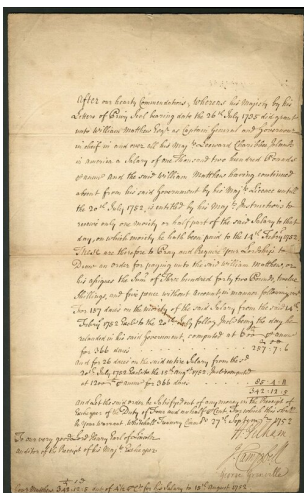 After our hearty Commendations, Whereas his Majesty by his
Letters of Privy Seal bearing date the 26th July 1735 did grant
unto William Mathew Esqr. as Captain General and Governour
in chief in and over all his Majty's Leeward Charibbee Islands
in America a Salary of One Thousand two hundred Pounds
annum And the said William Mathew having continued
absent from his said Government by his Majty's Licence until
the 20th July 1752, is entitled by his Majty's Instructions to
receive only one moiety or half part of the said Salary to that
day, on which moiety he hath been paid to the 14th Febry 1752
These are therefore to Pray and Require your Lordship to
Draw an Order for paying unto the said William Mathew, or
his assigns the Sum of Three hundred forty two Pounds, twelve
Shillings, and five pence without Account in manner following viz
For 157 days on the moiety of the said Salary from the said 14th
Febry 1752 to the 20th July following being the day he
relanded in his said Government, computed at 600 annum
for 366 days 257.7.6
And for 26 days on the said entire Salary from the sd.
20th July 1752 to the 15th Augst 1752
at 1200 annum for 366 days 85.4.11
342.12.5
And let the said Order be satisfied out of any money in the Receipt of
Exchequer of the Duty of Four and an half Cent. for which this shall
be your Warrant Whitehall Treasury Chambers 27th Septemr 1752
H Pelham
Campbell
George Grenville
To our very good Lord Henry Earl of Lincoln
Auditor of the Receipt of his Majty's Exchequer
Mathew 342.12.5 for his Salary to 15th August 1752